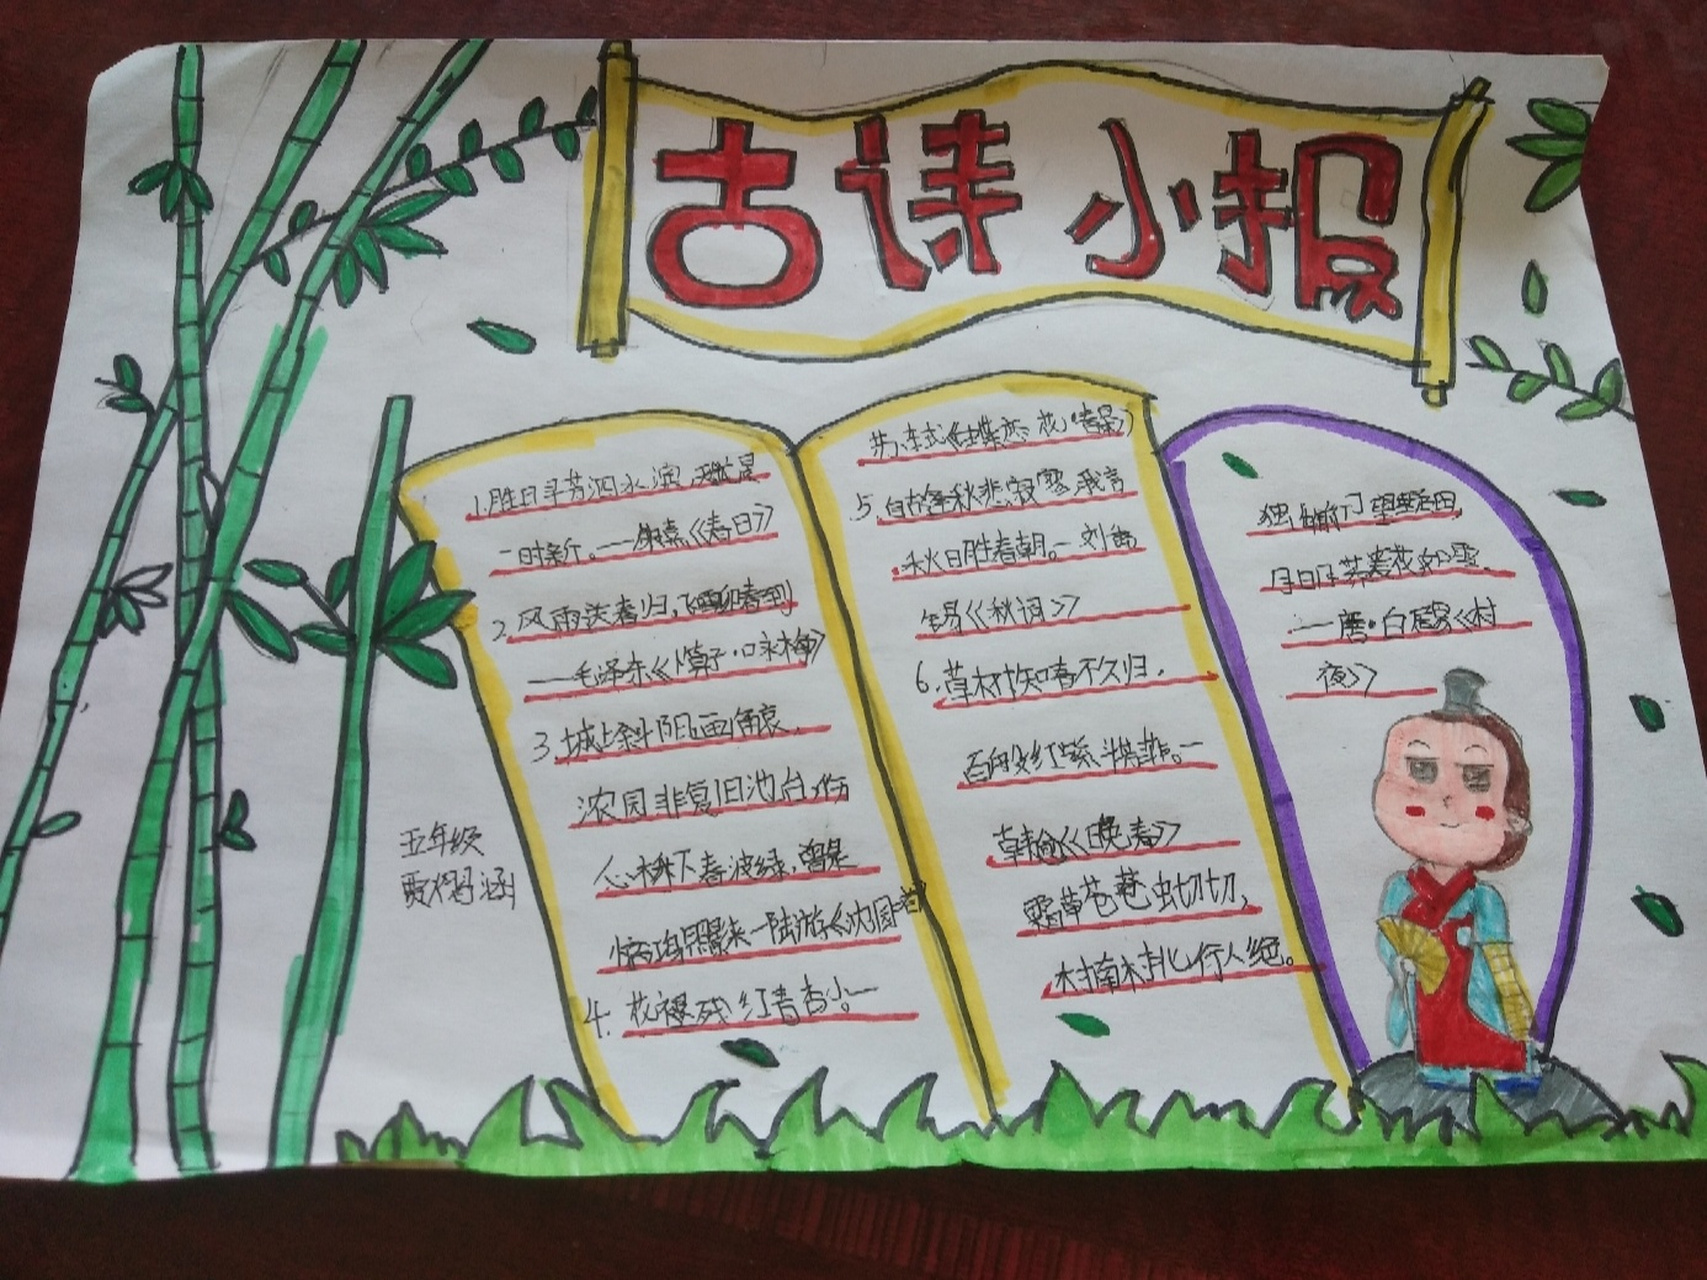 古诗小报
1.胜日寻芳泗水滨,无边光景
一时新。——朱熹《春日》
2.风雨送春归,飞雪迎春到
——毛泽东《卜算子·咏梅》
3.城上斜阳画角哀,
沈园非复旧池台,伤
心桥下春波绿,曾是
惊鸿照影来—陆游《沈园
4.花褪残红青杏小。—
苏轼《蝶恋花·春景》
5.自古逢秋悲寂寥,我言
秋日胜春朝。—刘禹
锡《秋词》
6.草树知春不久归,
百般红紫斗芳菲。—
韩愈《晚春》
霜草苍苍虫切切,
村南村北行人绝。
独出前门望野田
月明荞麦花如雪。
——唐·白居易《村
夜》
五年级
贾 涵